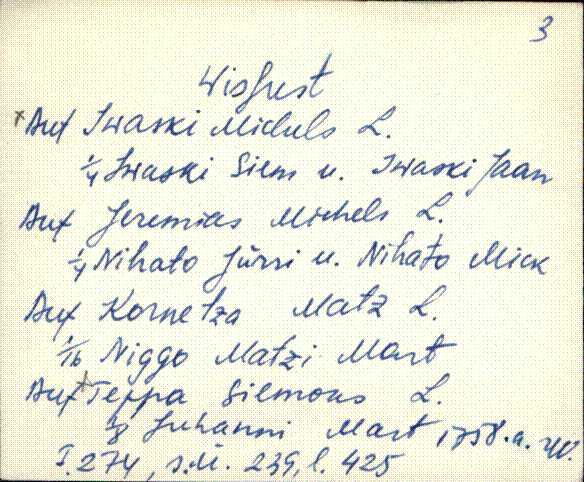 3
Wisust
x Auf Iwaski Michels L.
1/4 Iwaski Siem u. Iwaski Jaan
Auf Jeremias Michels L.
1/4 Nihato Jürri u. Nihato Mick
Auf Kornetza Matz L.
1/16 Niggo Matzi Mart
Auf x Teppa Siemons L.
1/8 Juhanni Mart 1758. a.
I. 274, s. M. 239, l. 425